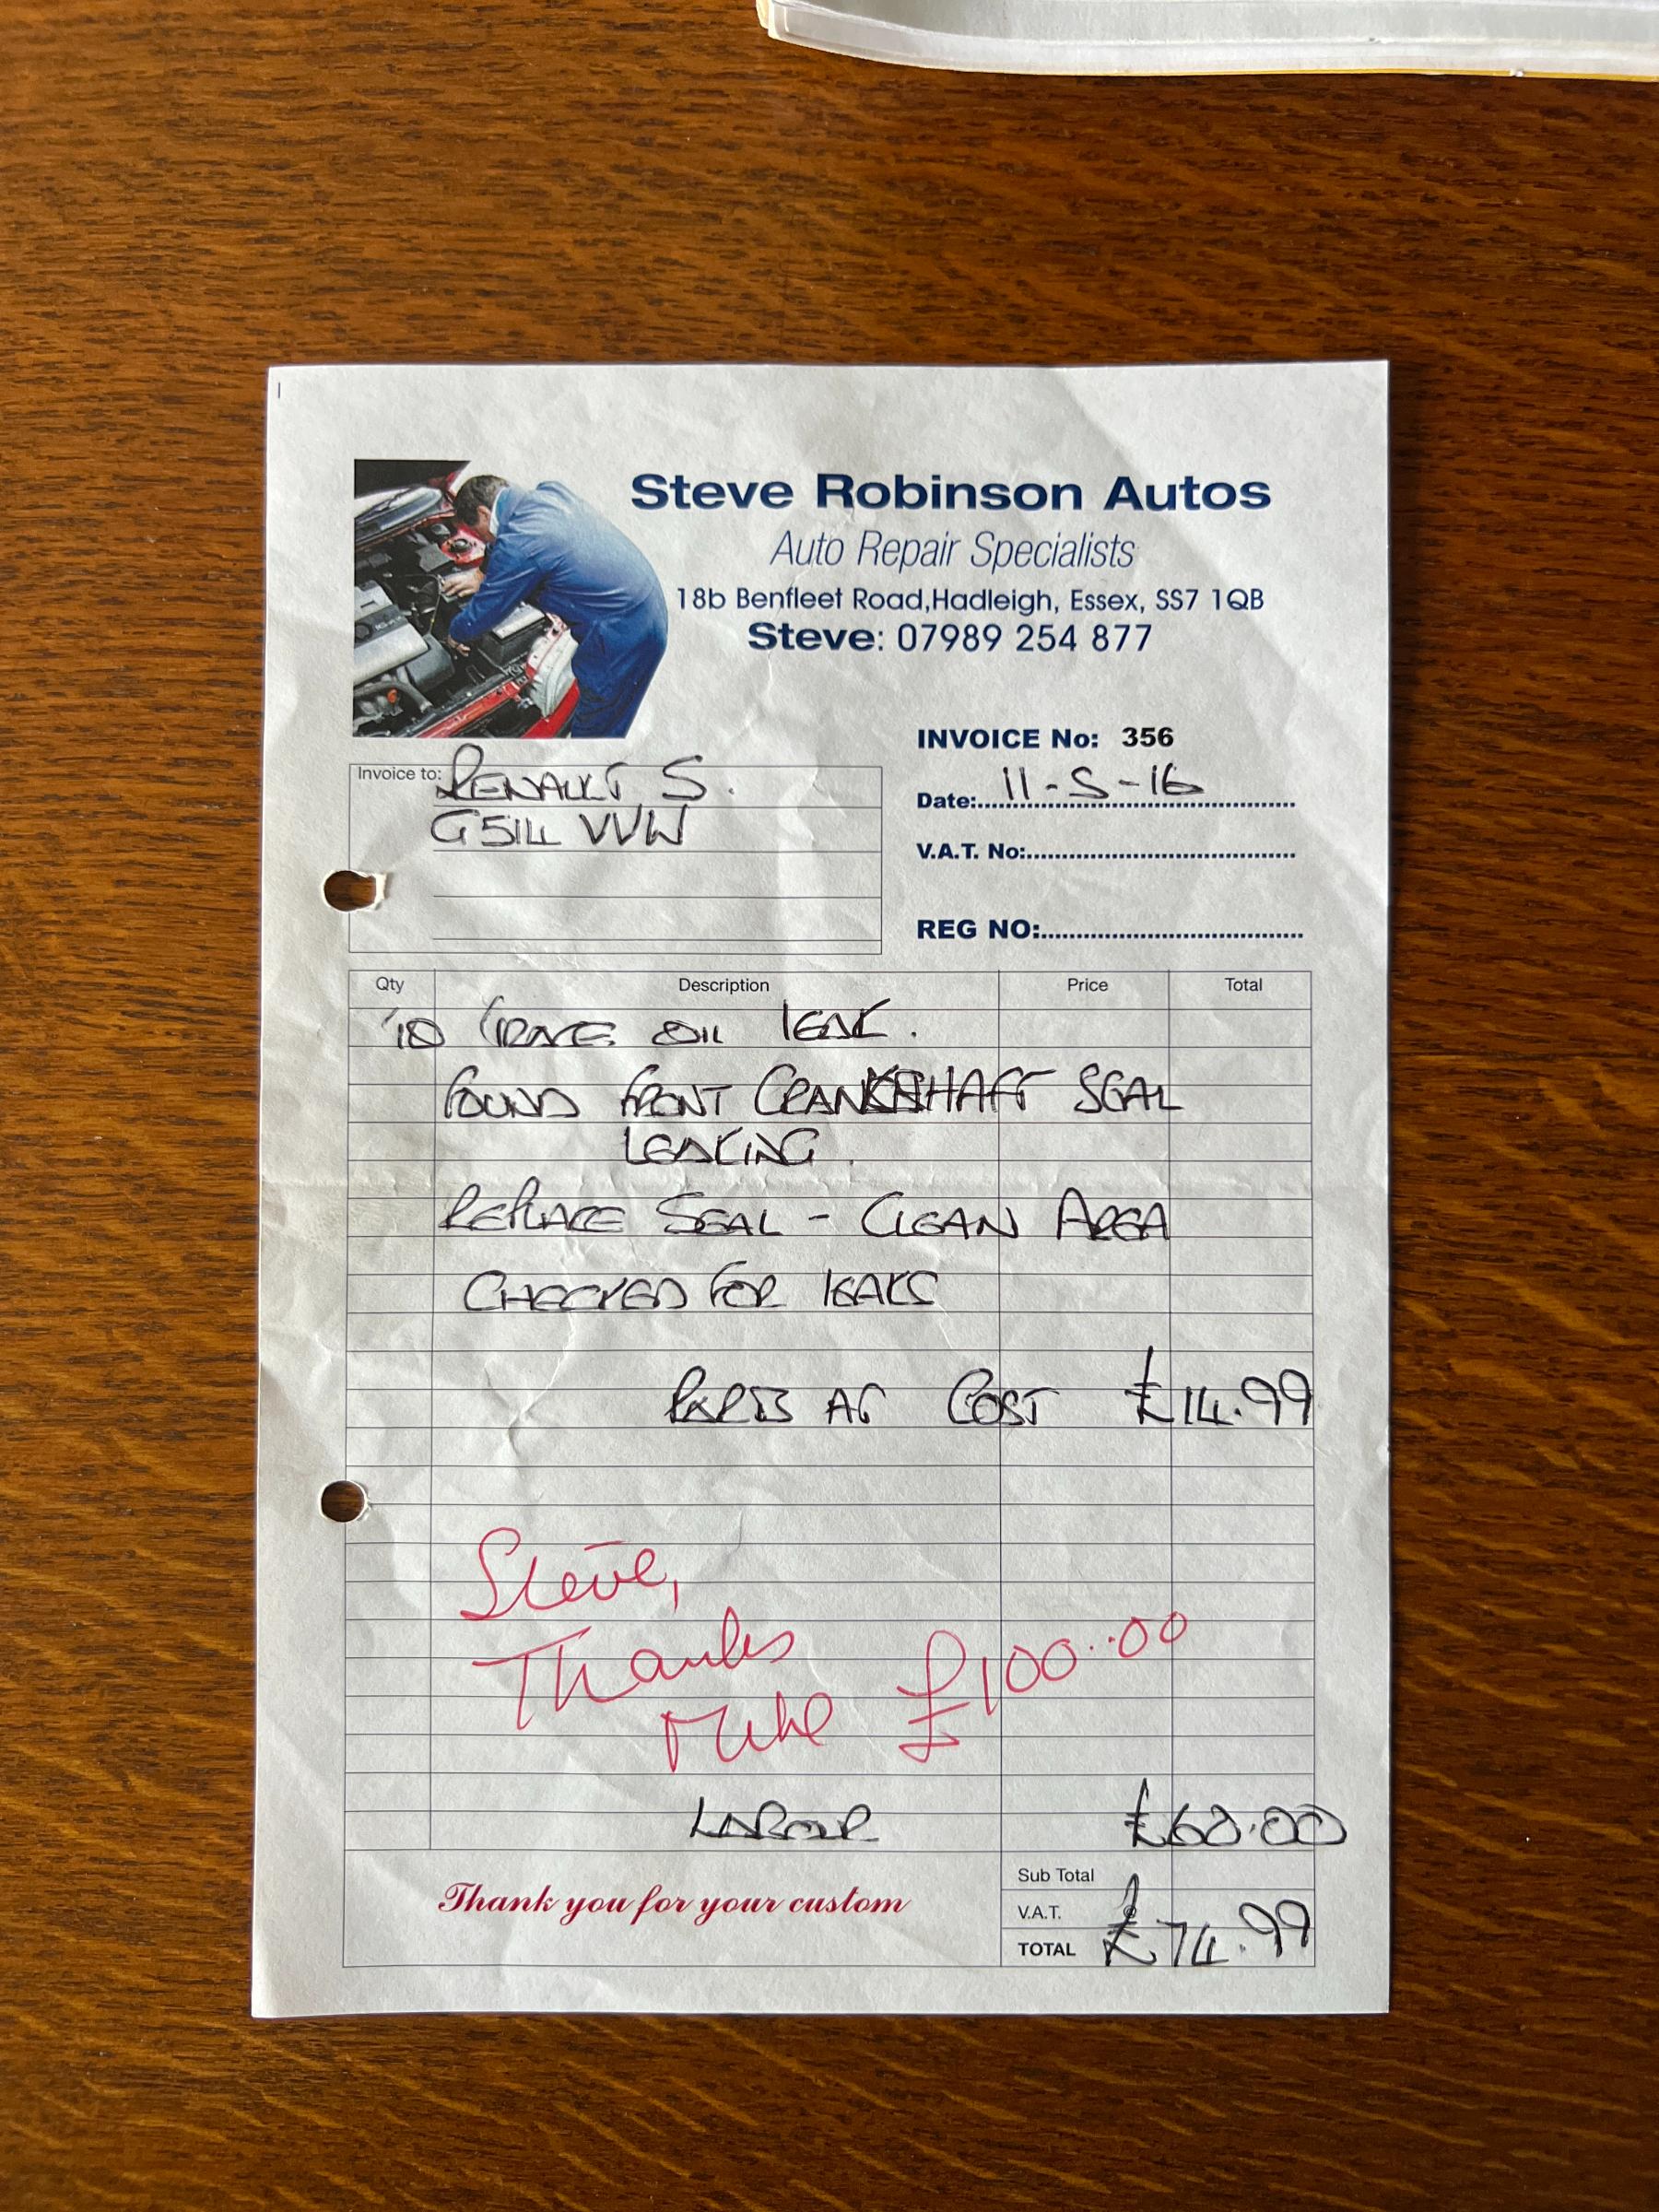 Steve Robinson Autos
Auto Repair Specialists
18b Benfleet Road,Hadleigh, Essex, SS7 1QB
Steve: 07989 254 877
INVOICE No: 356
Invoice to: RENAULT 5.
G514 VVW
Date: 11-5-16
V.A.T. No:
REG NO:
Qty Description Price Total
TO TRACE OIL LEAK.
FOUND FRONT CRANKSHAFT SEAL
LEAKING.
REPLACE SEAL - CLEAN AREA
CHECKED FOR LEAKS
PARTS AT COST £14.99
Steve,
Thanks
Mike £100.00
LABOUR £60.00
Thank you for your custom
Sub Total
V.A.T.
TOTAL £74.99